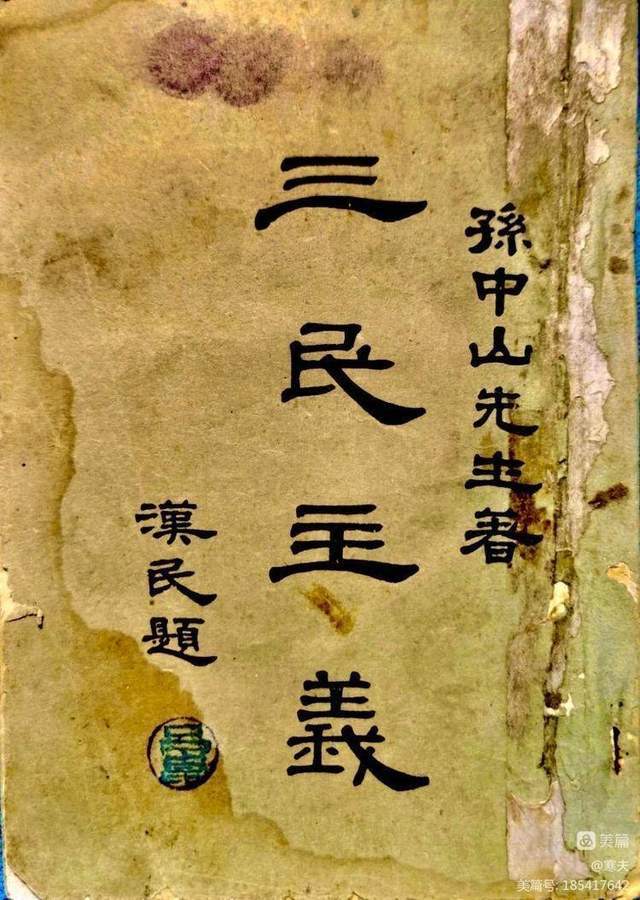 孫中山先生著
三民主義
漢民題
美篇
@寒夫
美篇号: 185417642